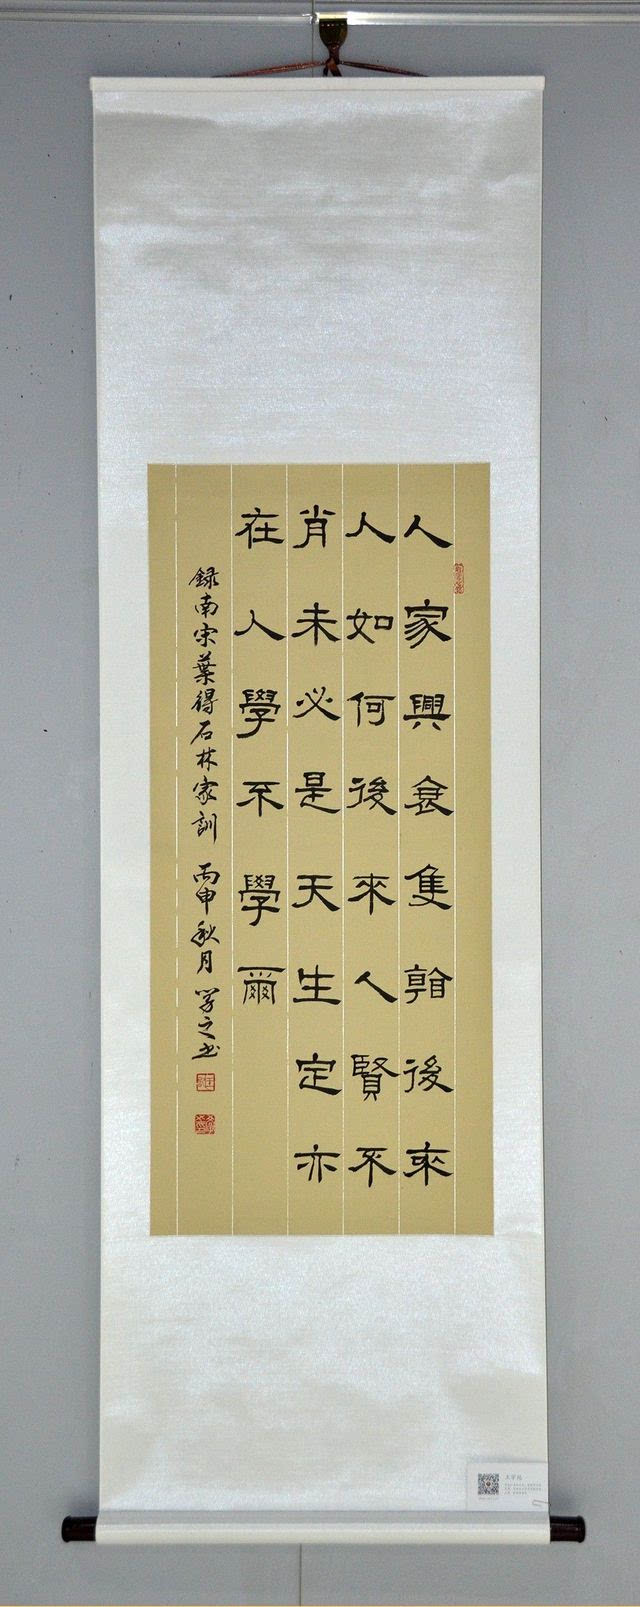 人家興衰隻觀後來
人如何後來人賢不
肖未必是天生定亦
在人學不學爾
録南宋葉得石林家訓 丙申秋月 学之书